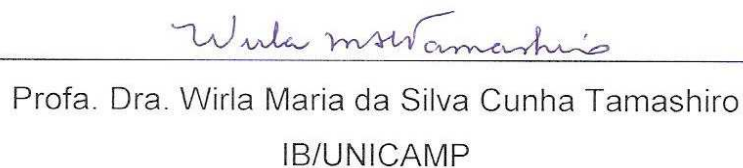 Wirla MSCTamashiro
Profa. Dra. Wirla Maria da Silva Cunha Tamashiro
IB/UNICAMP